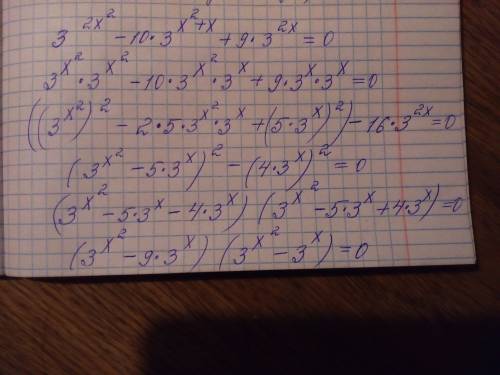 3^{2x^2} - 10·3^{x^2+x} + 9·3^{2x} = 0
3^{x^2}·3^{x^2} - 10·3^{x^2}·3^x + 9·3^x·3^x = 0
((3^{x^2})^2 - 2·5·3^{x^2}·3^x + (5·3^x)^2) - 16·3^{2x} = 0
(3^{x^2} - 5·3^x)^2 - (4·3^x)^2 = 0
(3^{x^2} - 5·3^x - 4·3^x) (3^{x^2} - 5·3^x + 4·3^x) = 0
(3^{x^2} - 9·3^x) (3^{x^2} - 3^x) = 0